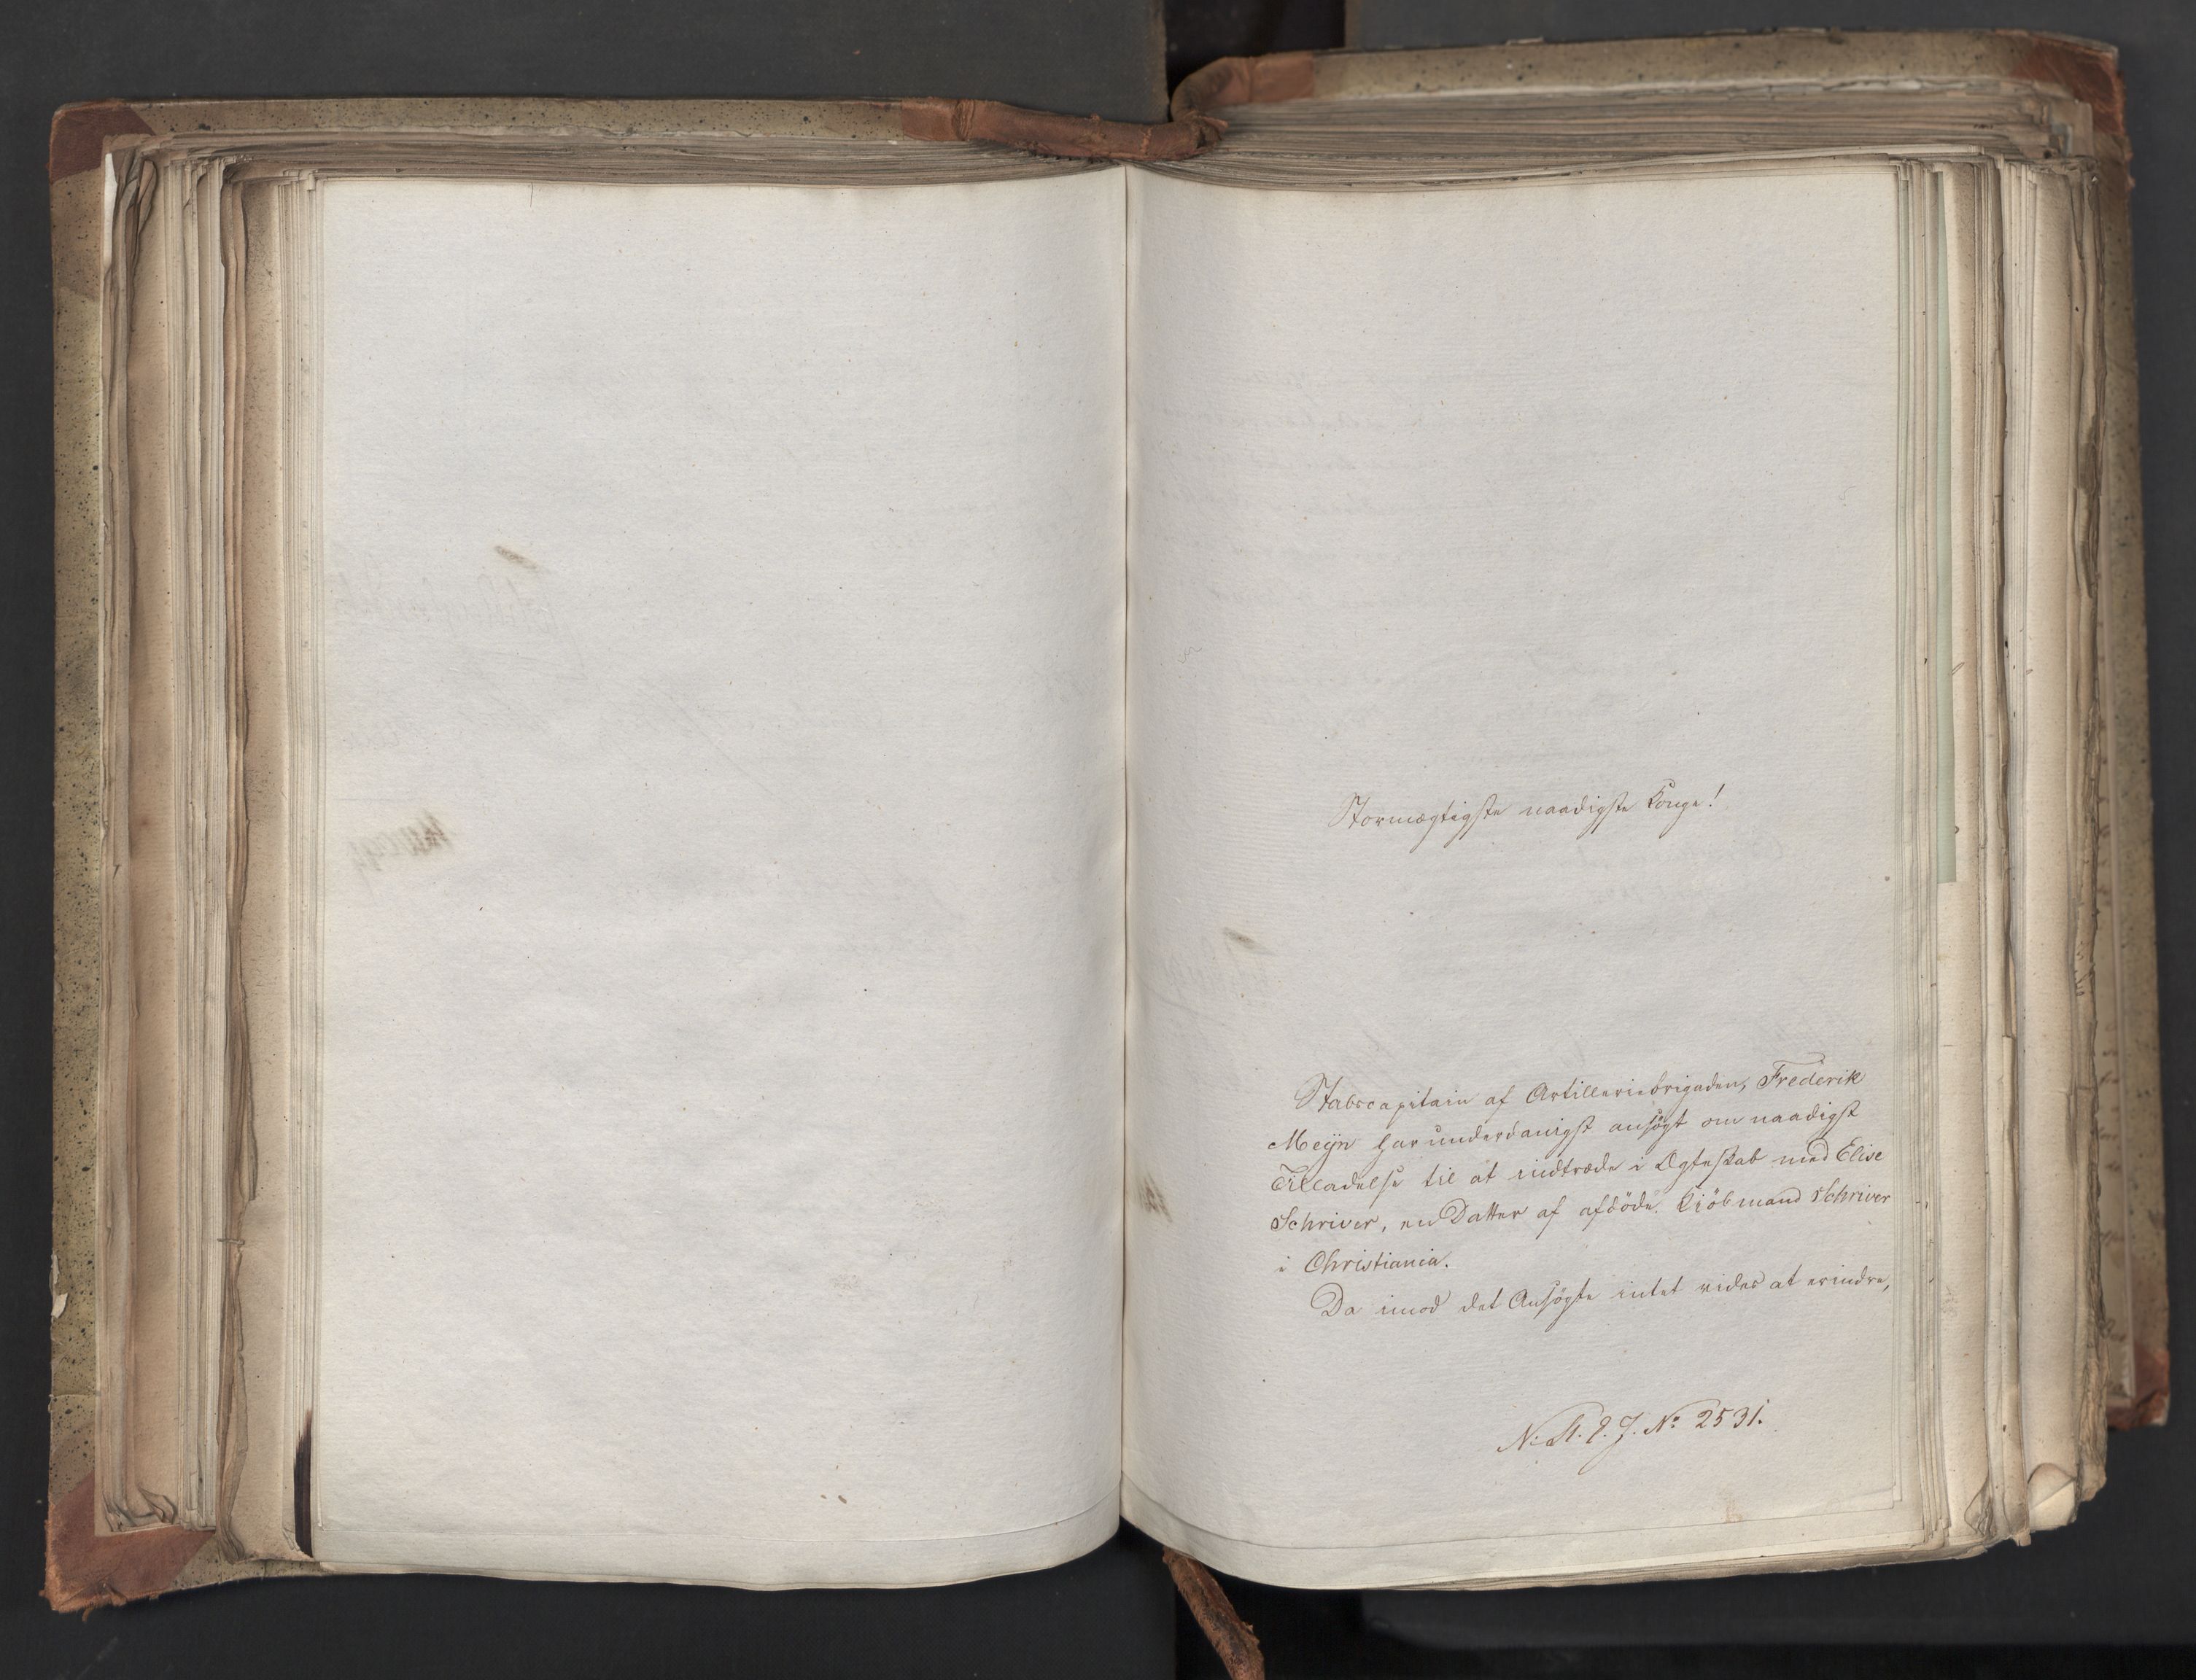 Stormægtigste naadigste Konge!
Stabscapitain af Artilleriebrigaden, Frederik
Meÿn har underdanigst ansögt om naadigst
Tilladelse til at indtræde i Ægteskab med Elise
Schriver, en Datter af afdöde Kiöbmand Schriver
i Christiania.
Da imod det Ansögte intet vides at erindre,
N. A. J. No 2531.